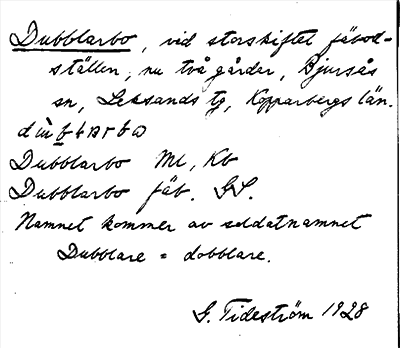 Dubblarbo, vid storskiftet fäbod-
ställen, nu två gårder, Bjursås
sn, Leksands tg, Kopparbergs län.
Dubblarbo Ml, Kb
Dubblarbo fäb. GS.
Namnet kommer av soldatnamnet
Dubblare = dobblare.
G. Tideström 1928